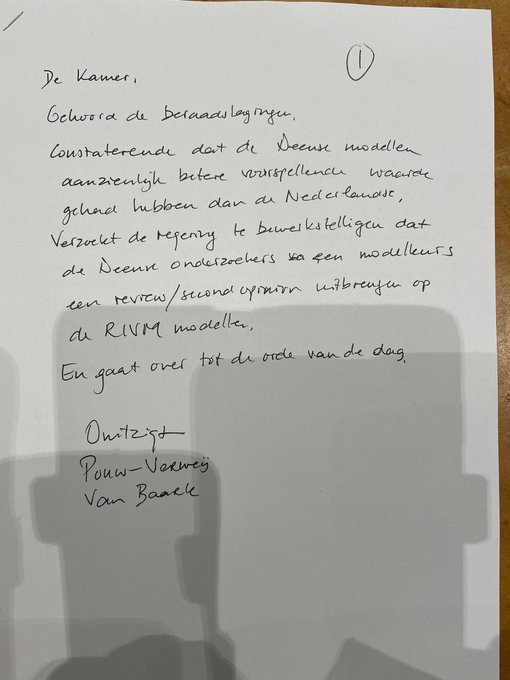 1
De Kamer,
Gehoord de beraadslagingen,
Constaterende dat de Deense modellen
aanzienlijk betere voorspellende waarde
gehad hebben dan de Nederlandse,
Verzoekt de regering te bewerkstelligen dat
de Deense onderzoekers en modelleurs
een review/second opinion uitbrengen op
de RIVM modellen,
En gaat over tot de orde van de dag.
Omtzigt
Pouw-Verweij
Van Baarle